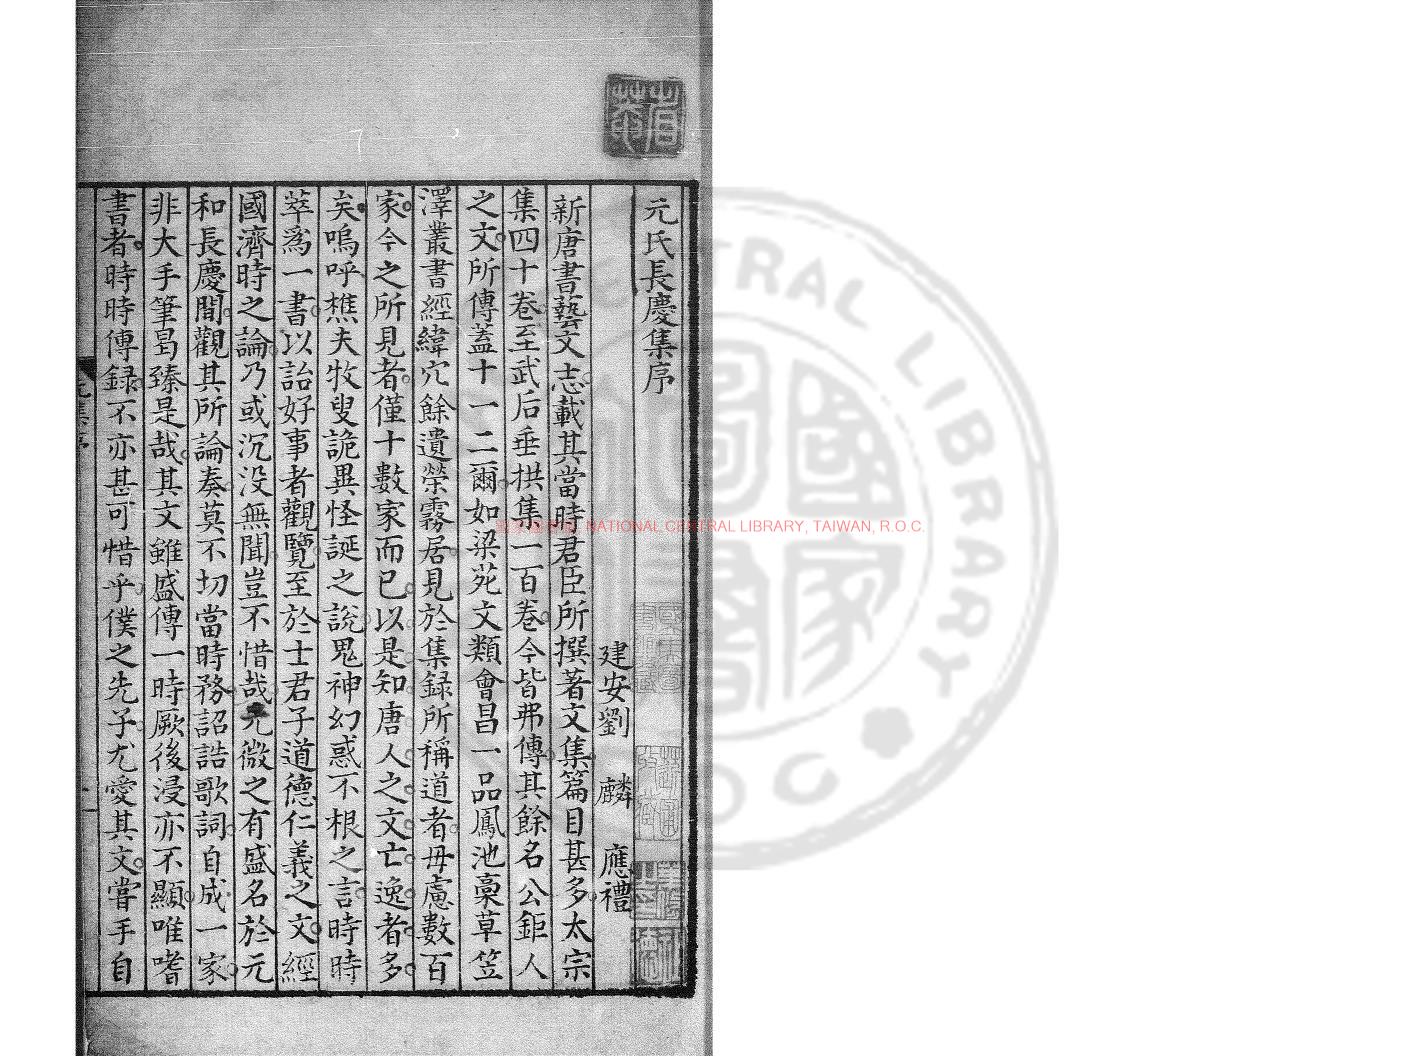 元氏長慶集序
建安劉 麟 應禮
新唐書藝文志載其當時君臣所撰著文集篇目甚多太宗
集四十卷至武后垂拱集一百卷今皆弗傳其餘名公鉅人
之文所傳蓋十一二爾如梁苑文類會昌一品鳳池稾草笠
澤叢書經緯宂餘遺榮霧居見於集録所稱道者毋慮數百
家今之所見者僅十數家而已以是知唐人之文亡逸者多
矣嗚呼樵夫牧叟詭異怪誕之說鬼神幻惑不根之言時時
萃爲一書以詒好事者觀覽至於士君子道德仁義之文經
國濟時之論乃或沉没無聞豈不惜哉元微之有盛名於元
和長慶間觀其所論奏莫不切當時務詔誥歌詞自成一家
非大手筆曷臻是哉其文雖盛傳一時厥後浸亦不顯唯嗜
書者時時傳録不亦甚可惜乎僕之先子尤愛其文嘗手自
元集序
NATIONAL CENTRAL LIBRARY, TAIWAN, R.O.C.
國家圖書館
CENTRAL LIBRARY
ROC